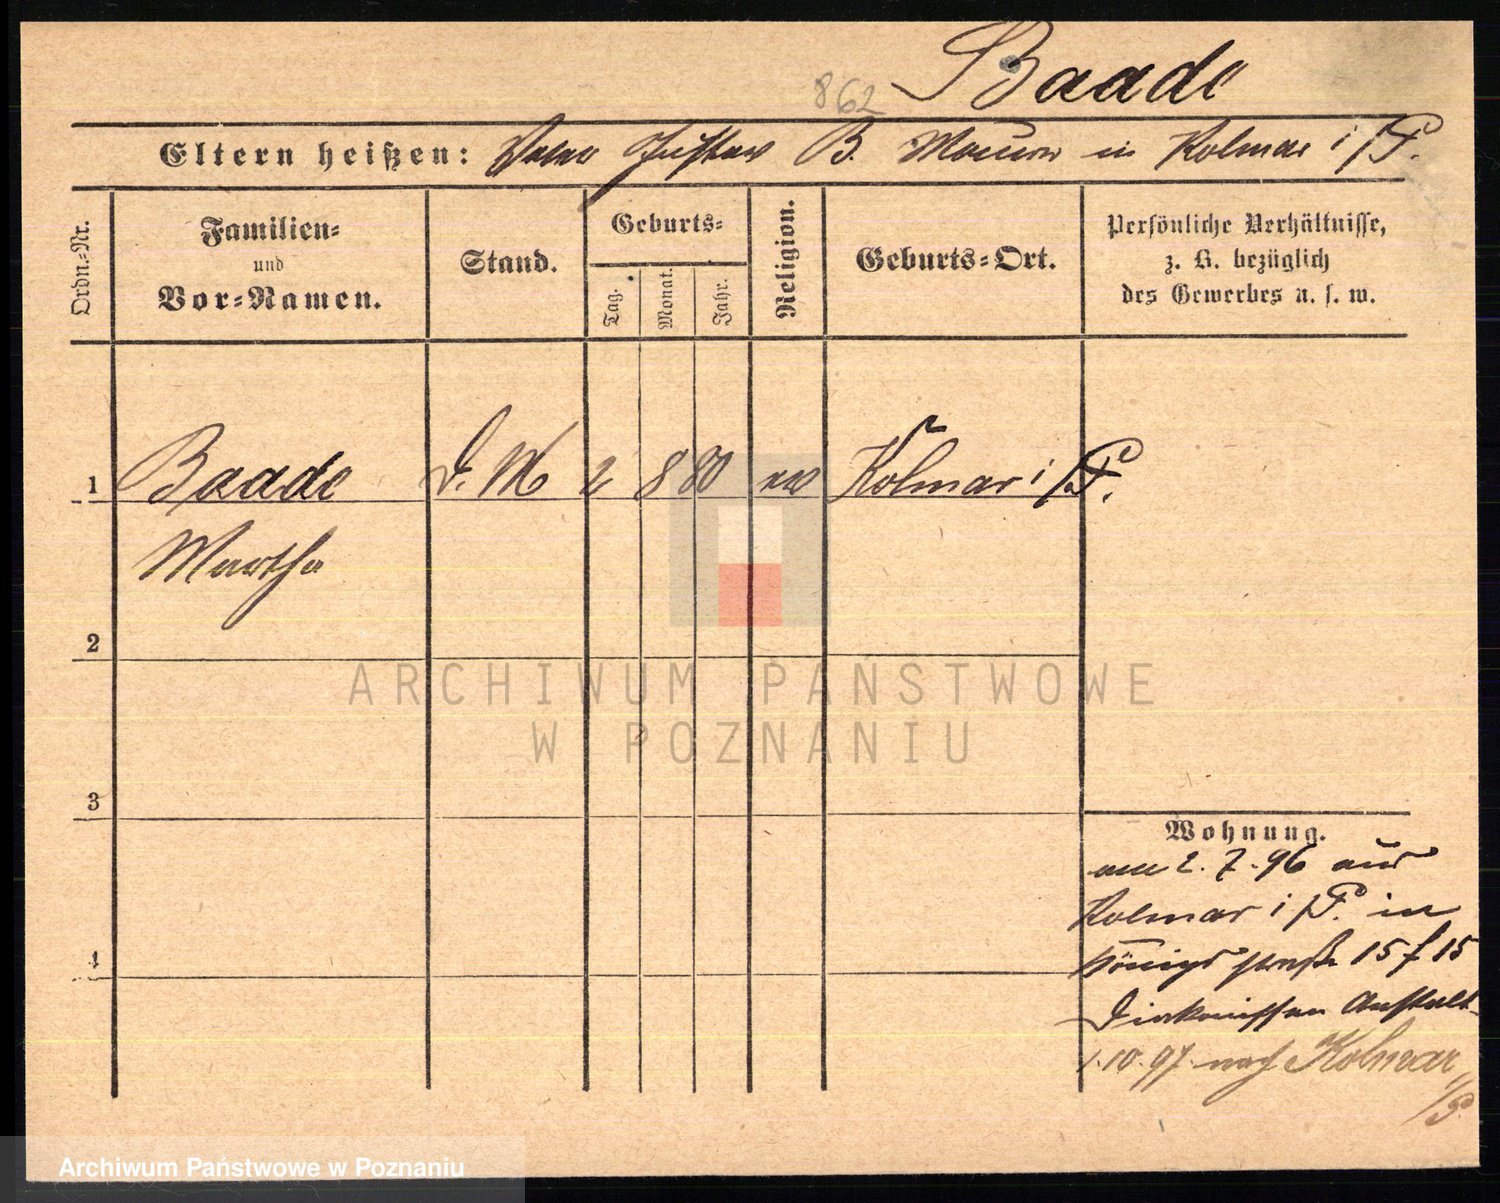 862 Baade
Eltern heißen: Vater Gustav B. Maurer in Kolmar i/P.
Ordn.-Nr.
Familien-
und
Vor-Namen.
Stand.
Geburts-
Tag. Monat. Jahr.
Religion.
Geburts-Ort.
Persönliche Verhältnisse,
z. B. bezüglich
des Gewerbes u. s. w.
1 Baade D. M 2 8 80 ev Kolmar i/P.
Martha
2
3
4
ARCHIWUM PAŃSTWOWE
W POZNANIU
Wohnung.
am 2. 7. 96 aus
Kolmar i/P. in
Königs straße 15 f 15
Diakonissen Anstalt
1. 10. 97 nach Kolmar
i/P.
Archiwum Państwowe w Poznaniu